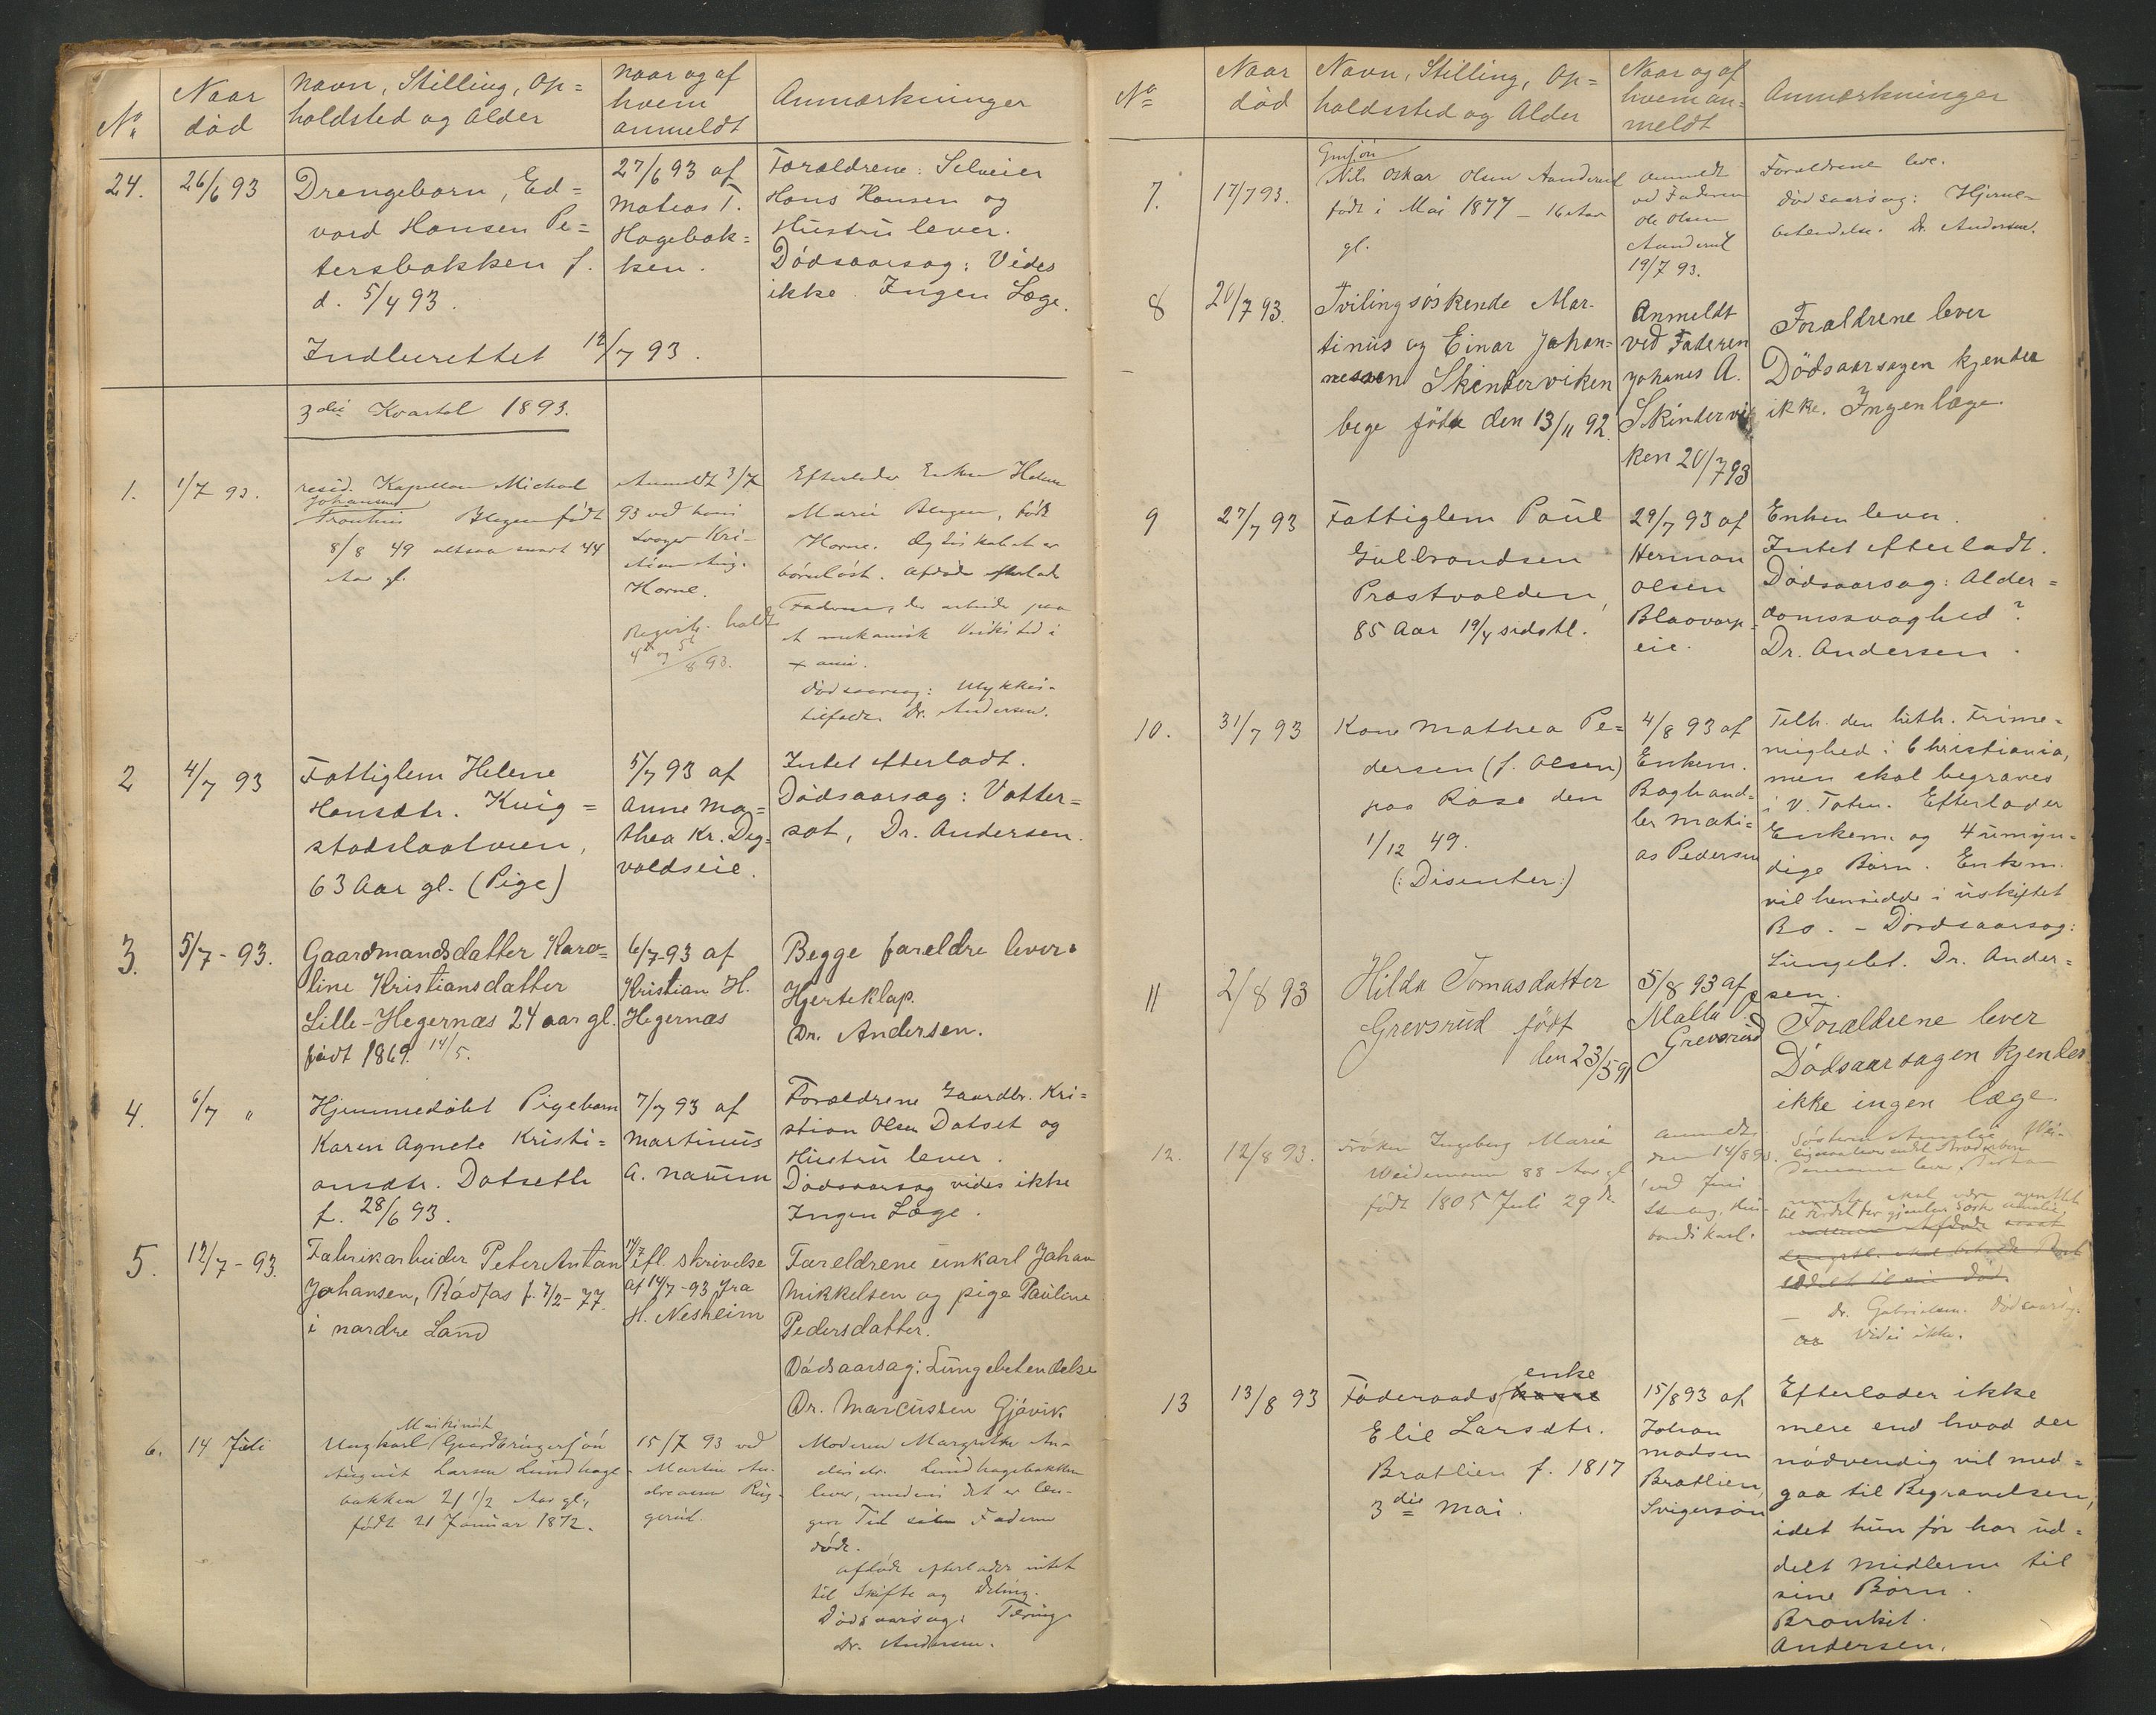 No.
Naar
död
Navn, Stilling, Op=
holdsted og Alder
Naar og af
hvem
anmeldt
Anmærkninger
24.
26/6 93
Drengebarn, Ed=
vard Hansen Pe=
tersbakken f.
d. 5/4 93.
Indberettet 12/7 93.
27/6 93 af
Mateas T.
Hagebak=
ken.
Forældrene: Selveier
Hans Hansen og
Hustru lever.
Dödsaarsag: Vides
ikke. Ingen Læge.
3die Kvartal 1893.
1.
1/7 93.
resid. Kapellan Michael
Johannes
født
8/8 49 altsaa snart 44
Aar gl.
Anmeldt 3/7
93 ved hans
Svoger Kri-
stian Aug.
Horne.
Registr. holdt
4de og 5te/8 93.
Efterlader Enken Helene
Marie Blegen, født
Horne. Ægteskabet er
börnlöst. Afdöde efterlader
Faderen, der arbeider paa
et mekanisk Værksted i
Dödsaarsag: Ulykkes-
tilfælde. Dr. Andersen.
2
4/7 93
Fattiglem Helene
Hansdtr. Knig=
stadslaatveen,
63 Aar gl. (Pige)
5/7 93 af
Anne Ma=
thea Kr. Dyg=
valdseie.
Intet efterladt.
Dödsaarsag: Vatter=
sot, Dr. Andersen.
3.
5/7 - 93.
Gaardmandsdatter Karo=
line Kristiansdatter
Lille-Hegernæs 24 aar gl.
født 1869. 14/5.
6/7-93 af
Kristian H.
Hegernæs
Begge forældre lever.
Hjerteklap.
Dr. Andersen.
4.
6/7 "
Hjemmedöbt Pigebarn
Karen Agnete Kristi=
ansdtr. Datseth
f. 28/6 93.
7/7 93 af
Martinius
A. Naumn
Forældrene Gaardbr. Kri=
stian Olsen Datset og
Hustru lever.
Dödsaarsag vides ikke
Ingen Læge.
5.
12/7 - 93.
Fabrikarbeider Peter Anton
Johansen, Rødfos f. 7/2 - 77.
i nordre Land
17/7 efl. skrivelse
af 14/7 - 93 fra
H. Nesheim
Forældrene unkarl Johan
Mikkelsen og pige Pauline
Pedersdatter.
Dödsaarsag: Lungebetendelse
Dr. Marcussen Gjövik
6.
14 Juli
Maskinist
Ungkarl Gaardbrugersön
August Larsen Lundhage-
bakken 21 1/2 Aar gl.,
født 21 Januar 1872.
15/7 93 ved
Martin An-
dreassen Rug-
gerud
Moderen Margrethe An-
dersdr. Lundhagebakken
lever, medens det er læn-
gere Tid siden Faderen
döde.
Afdöde efterlader intet
til Skifte og Deling.
Dödsaarsag: Tæring.
Dr. Andersen.
No
Naar
död
Navn, Stilling, Op=
holdssted og Alder
Naar og af
hvem an=
meldt
Anmærkninger
7.
17/7 93.
Gmsjön
Nils Oskar Olsen Aanderud
født i Mai 1877 - 16 Aar
gl.
Anmeldt
ved Faderen
Ole Olsen
Aanderud
19/7 93.
Forældrene leve.
Dödsaarsag: Hjerne-
betendelse. Dr. Andersen.
8
20/7 93.
Tvilingsöskende Mar-
tinus og Einar Johan=
nessen Skinderviken
bege födte den 13/11 92.
Anmeldt
ved Faderen
Johanes A.
Skindervi
ken 20/7 93
Forældrene lever
Dödsaarsagen kjendes
ikke. Ingen læge.
9
27/7 93
Fattiglem Paul
Gulbrandsen
Præstvolden,
85 Aar 19/4 sidstl.
29/7 93 af
Herman
Olsen
Blaavarp=
eie.
Enken lever.
Intet efterladt.
Dödsaarsag: Alder=
domssvaghed?
Dr. Andersen.
10.
31/7 93
Kone Mathea Pe=
dersen (f. Olsen)
paa Raase den
1/12 49.
(: Disenter:)
4/8 93 af
Enkem.
Boghand=
ler Mati=
as Pedersen
Tilh. den luth. Frime=
nighed i Christiania,
men skal begraves
i V. Toten. Efterlader
Enkem. og 4 umyn=
dige Börn. Enkem.
vil hensidde i uskiftet
Bo. - Dördsaarsag:
Lungebet. Dr. Ander=
sen.
11
2/8 93
Hilda Tomasdatter
Grevsrud födt
den 23/5 91
5/8 93 af
Malla
Grevsrud
Forældrene lever
Dödsaarsagen kjendes
ikke ingen læge.
12.
12/8 93.
Fröken Ingeborg Marie
Weidemann 88 Aar gl
født 1805 Juli 29de
Anmeldt
den 14/8 93.
ved Jens
bondskarl.
Söstern Amalie Wei-
demann lever
Dr. Gabrielsen. Dödsaarsag.
Vides ikke.
13
13/8 93
enke
Föderaads kone
Elie Larsdtr.
Bratlien f. 1817
3die Mai.
15/8 93 af
Johan
Madsen
Bratlien,
Svigersön
Efterlader ikke
mere end hvad der
nödvendig vil med=
gaa til Begravelsen,
idet hun för har ud=
delt Midlerne til
sine Börn.
Bronkit.
Andersen.